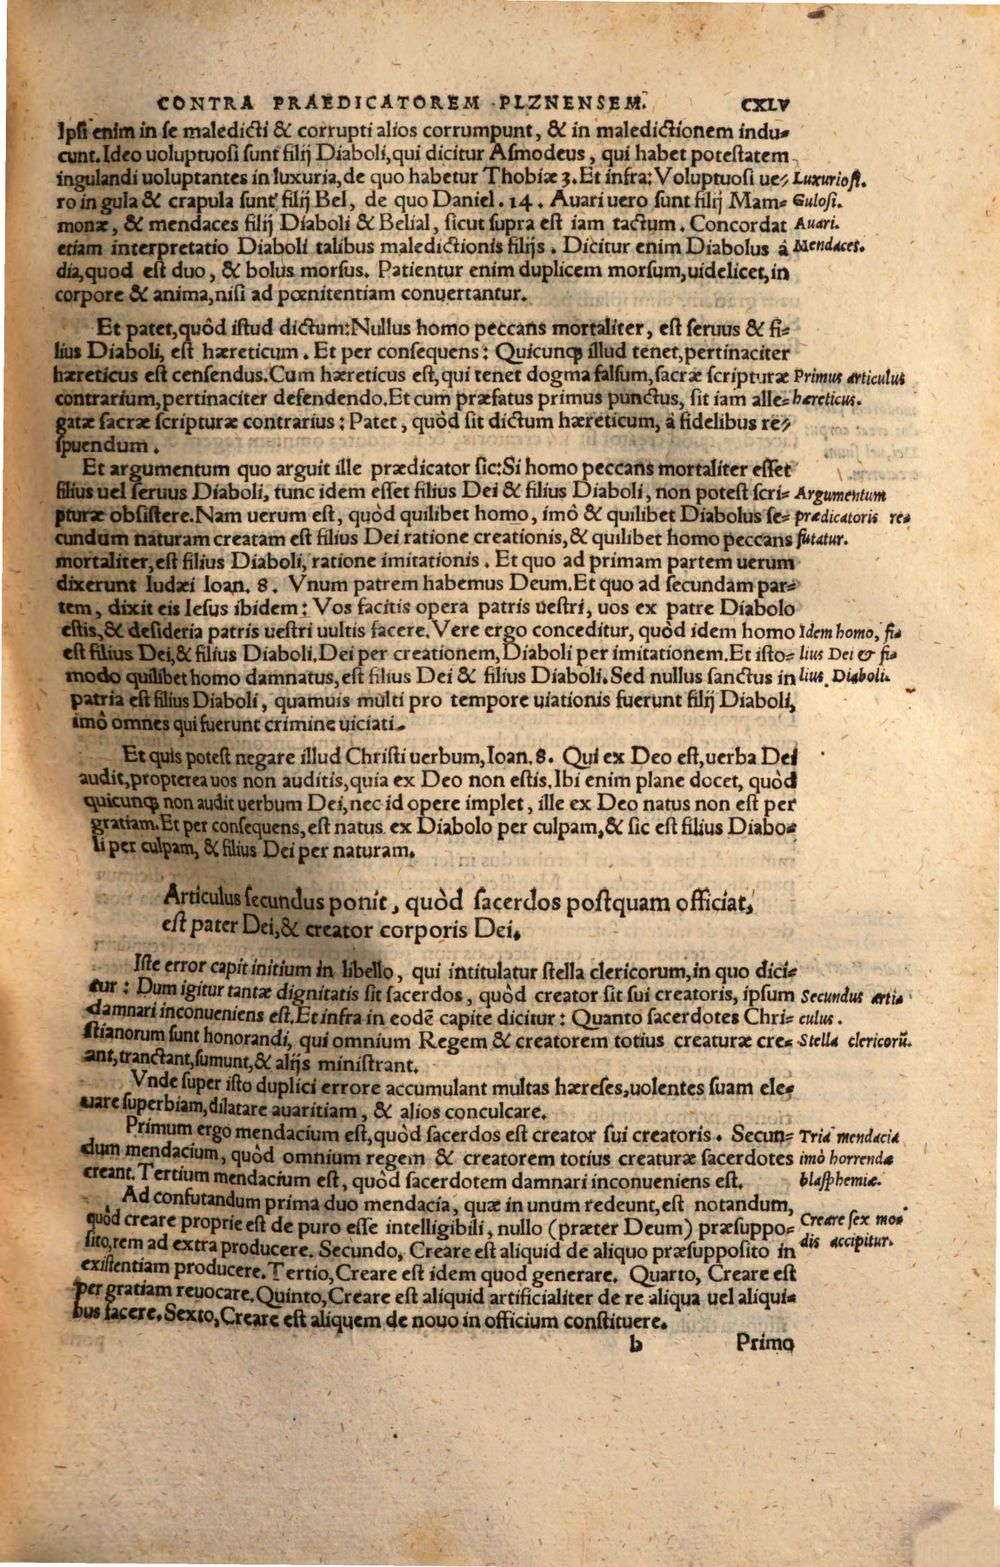 CONTRA PRAEDICATOREM PLZNENSEM. CXLV
Ipſi enim in ſe maledicti & corrupti alios corrumpunt, & in maledictionem indu⸗
cunt. Ideo uoluptuoſi ſunt filij Diaboli, qui dicitur Aſmodeus, qui habet poteſtatem
ingulandi uoluptantes in luxuria, de quo habetur Thobiæ 3. Et infra: Voluptuoſi ue⸗ Luxurioſi.
ro in gula & crapula ſunt filij Bel, de quo Daniel. 14. Auari uero ſunt filij Mam⸗ Guloſi.
monæ, & mendaces filij Diaboli & Belial, ſicut ſupra eſt iam tactum. Concordat Auari.
etiam interpretatio Diaboli talibus maledictionis filijs. Dicitur enim Diabolus á Mendaces.
dia, quod eſt duo, & bolus morſus. Patientur enim duplicem morſum, uidelicet, in
corpore & anima, niſi ad pœnitentiam conuertantur.
Et patet, quôd iſtud dictum: Nullus homo peccans mortaliter, eſt ſeruus & fi⸗
lius Diaboli, eſt hæreticum. Et per conſequens: Quicunq; illud tenet, pertinaciter
hæreticus eſt cenſendus. Cum hæreticus eſt, qui tenet dogma falſum, ſacræ ſcripturæ Primus articulus
contrarium, pertinaciter defendendo. Et cum præfatus primus punctus, ſit iam alle⸗ hæreticus.
gatæ ſacræ ſcripturæ contrarius: Patet, quôd ſit dictum hæreticum, á fidelibus re⸗
ſpuendum.
Et argumentum quo arguit ille prædicator ſic: Si homo peccans mortaliter eſſet
filius uel ſeruus Diaboli, tunc idem eſſet filius Dei & filius Diaboli, non poteſt ſcri⸗ Argumentum
pturæ obſiſtere. Nam uerum eſt, quòd quilibet homo, imò & quilibet Diabolus ſe⸗ prædicatoris re⸗
cundum naturam creatam eſt filius Dei ratione creationis, & quilibet homo peccans futatur.
mortaliter, eſt filius Diaboli, ratione imitationis. Et quo ad primam partem uerum
dixerunt Iudæi Ioan. 8. Vnum patrem habemus Deum. Et quo ad ſecundam par⸗
tem, dixit eis Ieſus ibidem: Vos facitis opera patris ueſtri, uos ex patre Diabolo
eſtis, & deſideria patris ueſtri uultis facere. Vere ergo conceditur, quòd idem homo Idem homo, fi⸗
eſt filius Dei, & filius Diaboli. Dei per creationem, Diaboli per imitationem. Et iſto⸗ lius Dei & fi⸗
modo quilibet homo damnatus, eſt filius Dei & filius Diaboli. Sed nullus ſanctus in lius Diaboli.
patria eſt filius Diaboli, quamuis multi pro tempore uiationis fuerunt filij Diaboli,
imò omnes qui fuerunt crimine uiciati.
Et quis poteſt negare illud Chriſti uerbum, Ioan. 8. Qui ex Deo eſt, uerba Dei
audit, propterea uos non auditis, quia ex Deo non eſtis. Ibi enim plane docet, quòd
quicunq; non audit uerbum Dei, nec id opere implet, ille ex Deo natus non eſt per
gratiam. Et per conſequens, eſt natus ex Diabolo per culpam, & ſic eſt filius Diabo⸗
li per culpam, & filius Dei per naturam.
Articulus ſecundus ponit, quòd ſacerdos poſtquam officiat,
eſt pater Dei, & creator corporis Dei.
Iſte error capit initium in libello, qui intitulatur ſtella clericorum, in quo dici⸗
tur: Dum igitur tantæ dignitatis ſit ſacerdos, quòd creator ſit ſui creatoris, ipſum Secundus arti⸗
damnari inconueniens eſt. Et infra in eodē capite dicitur: Quanto ſacerdotes Chri⸗ culus.
ſtianorum ſunt honorandi, qui omnium Regem & creatorem totius creaturæ cre⸗ Stella clericorū.
ant, tranctant, ſumunt, & alijs miniſtrant.
Vnde ſuper iſto duplici errore accumulant multas hæreſes, uolentes ſuam ele⸗
uare ſuperbiam, dilatare auaritiam, & alios conculcare.
Primum ergo mendacium eſt, quòd ſacerdos eſt creator ſui creatoris. Secun⸗ Tria mendacia
dum mendacium, quòd omnium regem & creatorem totius creaturæ ſacerdotes imò horrendæ
creant. Tertium mendacium eſt, quòd ſacerdotem damnari inconueniens eſt. blaſphemiæ.
Ad confutandum prima duo mendacia, quæ in unum redeunt, eſt notandum,
quòd creare proprie eſt de puro eſſe intelligibili, nullo (præter Deum) præſuppo⸗ Creare ſex mo⸗
ſito, rem ad extra producere. Secundo, Creare eſt aliquid de aliquo præſuppoſito in dis accipitur.
exiſtentiam producere. Tertio, Creare eſt idem quod generare. Quarto, Creare eſt
per gratiam reuocare. Quinto, Creare eſt aliquid artificialiter de re aliqua uel aliqui⸗
bus facere. Sexto, Creare eſt aliquem de nouo in officium conſtituere.
b Primo